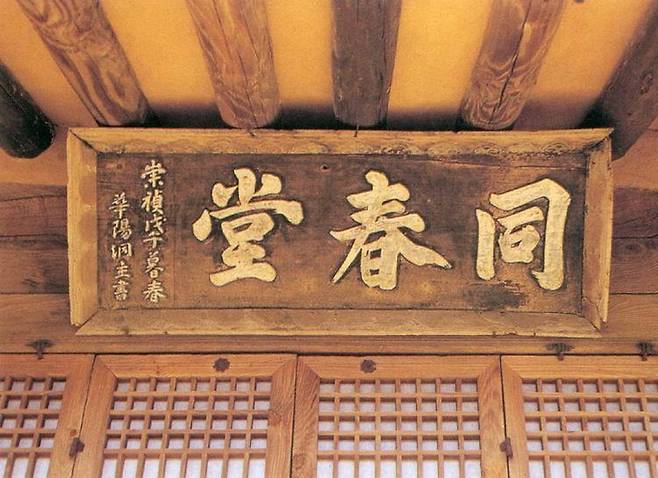 同春堂
崇禎戊午暮春
華陽洞主書